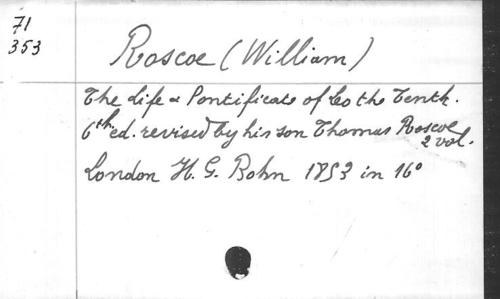 71
353
Roscoe (William)
The life & Pontificate of Leo the Tenth.
6th ed. revised by his son Thomas Roscoe
2 vol.
London H. G. Bohn 1853 in 16°